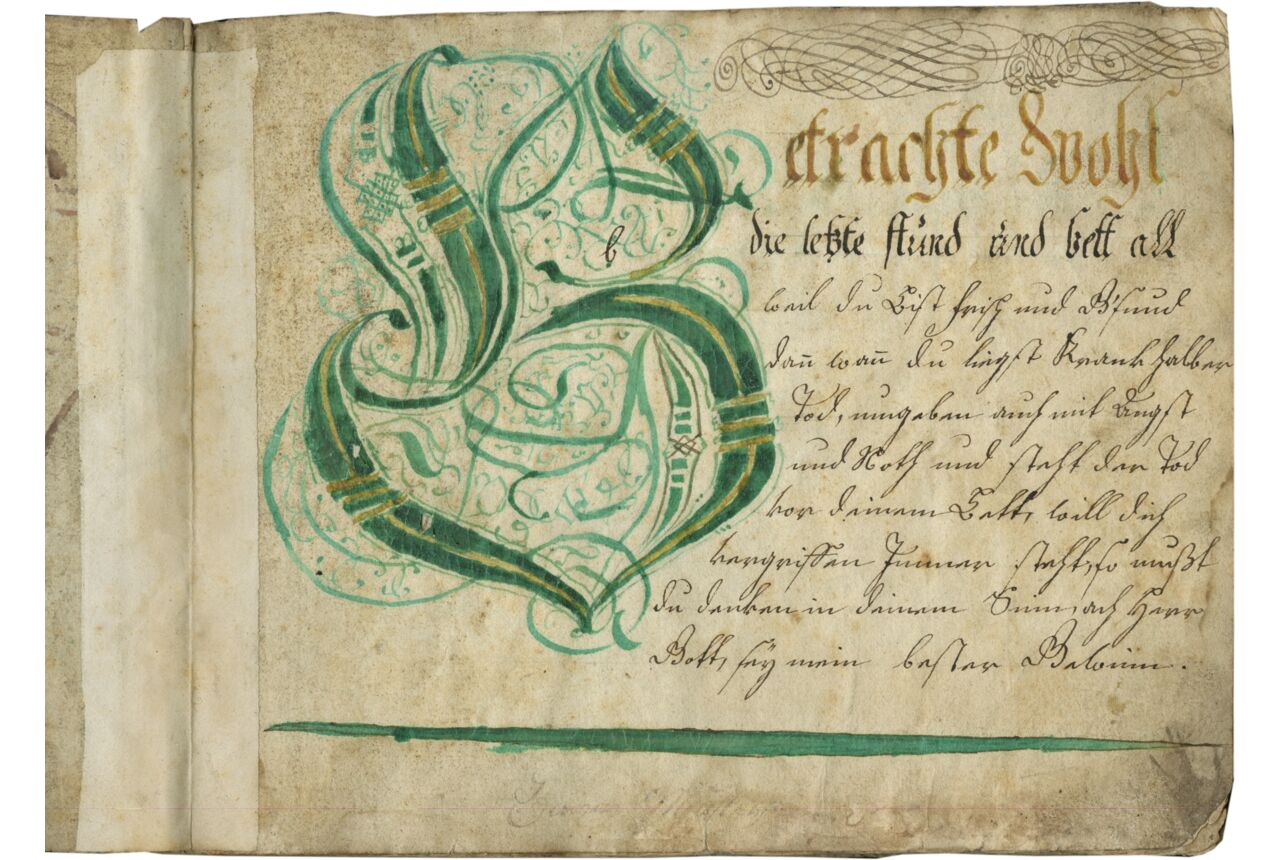 Betrachte Wohl
die letzte stŭnd ŭnd bett all
weil du Bist frisch und G'sund
dan̄ wan̄ du liegst Krank halber
Tod, umgeben auch mit Angst
und Noth und steht der Tod
vor deinem Bett, will dich
vergriffen Immer steht, so mußt
du denken in deinem Sinn, ach Herr
Gott, seÿ mein bester Gewinn.